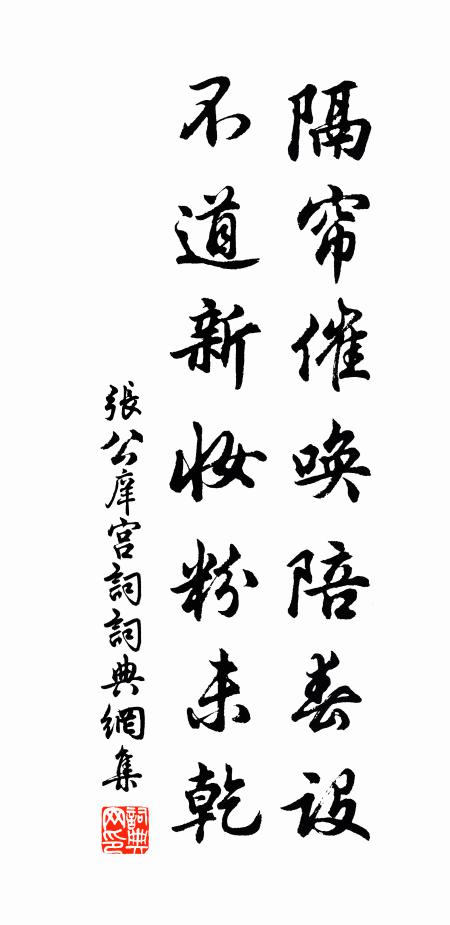 隔帘催唤陪春设
不道新妆粉未乾
張公庠宫詞詞典網集
詞典网印